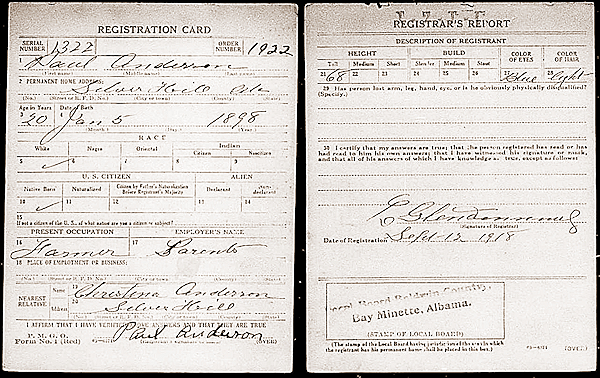 REGISTRATION CARD
SERIAL NUMBER 1322 ORDER NUMBER 1922
1 Paul Anderson
(First name) (Middle name) (Last name)
2 PERMANENT HOME ADDRESS:
Silver Hill Ala
(No.) (Street or R. F. D. No.) (City or town) (County) (State)
Age in Years Date of Birth
3 20 Jan 5 1898
(Month) (Day) (Year)
RACE
White Negro Oriental Indian
Citizen Noncitizen
5 ✓ 6 7 8 9
U. S. CITIZEN ALIEN
Native Born Naturalized Citizen by Father's Naturalization Before Registrant's Majority Declarant Non-declarant
10 ✓ 11 12 13 14
15 If not a citizen of the U. S., of what nation are you a citizen or subject?
PRESENT OCCUPATION EMPLOYER'S NAME
16 Farmer 17 Parents
18 PLACE OF EMPLOYMENT OR BUSINESS:
(No.) (Street or R. F. D. No.) (City or town) (County) (State)
NEAREST RELATIVE Name 19 Christena Anderson
Address 20 Silver Hill
(No.) (Street or R. F. D. No.) (City or town) (County) (State)
I AFFIRM THAT I HAVE VERIFIED ABOVE ANSWERS AND THAT THEY ARE TRUE
P. M. G. O.
Form No. 1 (Red) Paul Anderson
(OVER)
REGISTRAR'S REPORT
DESCRIPTION OF REGISTRANT
HEIGHT BUILD COLOR OF EYES COLOR OF HAIR
Tall Medium Short Slender Medium Stout
21 68 22 23 24 25 26 27 Blue 28 Light
29 Has person lost arm, leg, hand, eye, or is he obviously physically disqualified?
(Specify.)
30 I certify that my answers are true; that the person registered has read or has
had read to him his own answers; that I have witnessed his signature or mark,
and that all of his answers of which I have knowledge are true, except as follows:
(Signature of Registrar)
Date of Registration Sept-12-1918
Local Board Baldwin County,
Bay Minette, Alabama.
(STAMP OF LOCAL BOARD)
(The stamp of the Local Board having jurisdiction of the area in which
the registrant has his permanent home shall be placed in this box.)
(OVER)